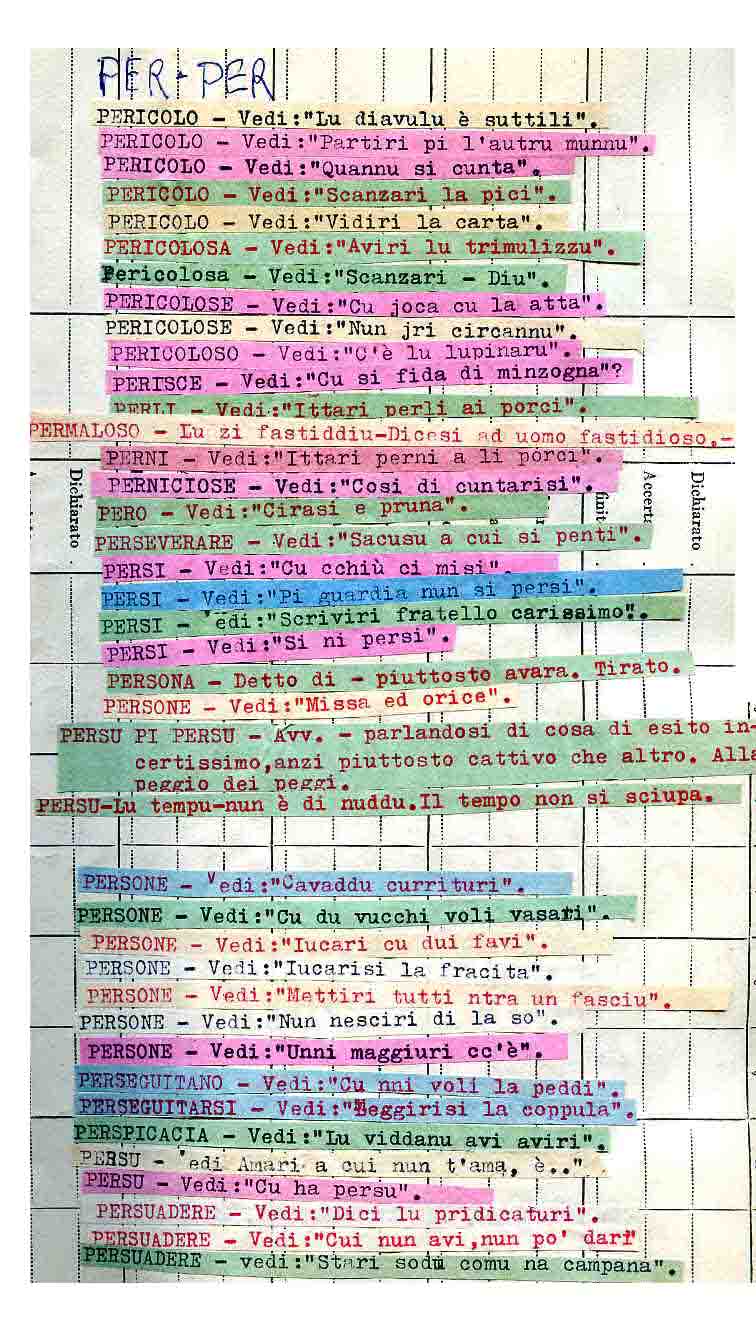 PER-PER
PERICOLO - Vedi:"Lu diavulu è suttili".
PERICOLO - Vedi:"Partiri pi l'autru munnu".
PERICOLO - Vedi:"Quannu si cunta".
PERICOLO - Vedi:"Scanzari la pici".
PERICOLO - Vedi:"Vidiri la carta".
PERICOLOSA - Vedi:"Aviri lu trimulizzu".
Pericolosa - Vedi:"Scanzari - Diu".
PERICOLOSE - Vedi:"Cu joca cu la atta".
PERICOLOSE - Vedi:"Nun jri circannu".
PERICOLOSO - Vedi:"C'è lu lupinaru".
PERISCE - Vedi:"Cu si fida di minzogna"?
PERLI - Vedi:"Ittari perli ai porci".
PERMALOSO - Lu zi fastiddiu-Dicesi ad uomo fastidioso.-
PERNI - Vedi:"Ittari perni a li porci".
PERNICIOSE - Vedi:"Cosi di cuntarisi".
Dichiarato
finit
Accerta
Dichiarato
PERO - Vedi:"Cirasi e pruna".
PERSEVERARE - Vedi:"Sacusu a cui si penti".
PERSI - Vedi:"Cu cchiù ci misi".
PERSI - Vedi:"Pi guardia nun si persi".
PERSI - 'edi:"Scriviri fratello carissimo".
PERSI - Vedi:"Si ni persi".
PERSONA - Detto di - piuttosto avara. Tirato.
PERSONE - Vedi:"Missa ed orice".
PERSU PI PERSU - Avv. - parlandosi di cosa di esito in-
certissimo,anzi piuttosto cattivo che altro. Alla
peggio dei peggi.
PERSU-Lu tempu-nun è di nuddu.Il tempo non si sciupa.
PERSONE - Vedi:"Cavaddu currituri".
PERSONE - Vedi:"Cu du vucchi voli vasari".
PERSONE - Vedi:"Iucari cu dui favi".
PERSONE - Vedi:"Iucarisi la fracita".
PERSONE - Vedi:"Mettiri tutti ntra un fasciu".
PERSONE - Vedi:"Nun nesciri di la so".
PERSONE - Vedi:"Unni maggiuri cc'è".
PERSEGUITANO - Vedi:"Cu nni voli la peddi".
PERSEGUITARSI - Vedi:"Leggirisi la coppula".
PERSPICACIA - Vedi:"Lu viddanu avi aviri".
PERSU - 'edi Amari a cui nun t'ama, è..".
PERSU - Vedi:"Cu ha persu".
PERSUADERE - Vedi:"Dici lu pridicaturi".
PERSUADERE - Vedi:"Cui nun avi,nun po' dari"
PERSUADERE - vedi:"Stari sodu comu na campana".